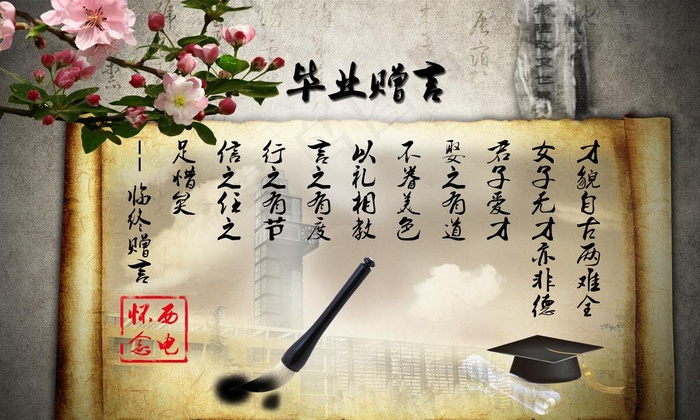 毕业赠言
才貌自古两难全
女子无才亦非德
君子爱才
娶之有道
不眷美色
以礼相教
言之有度
行之有节
信之任之
足惜矣
——临终赠言
西电
怀念